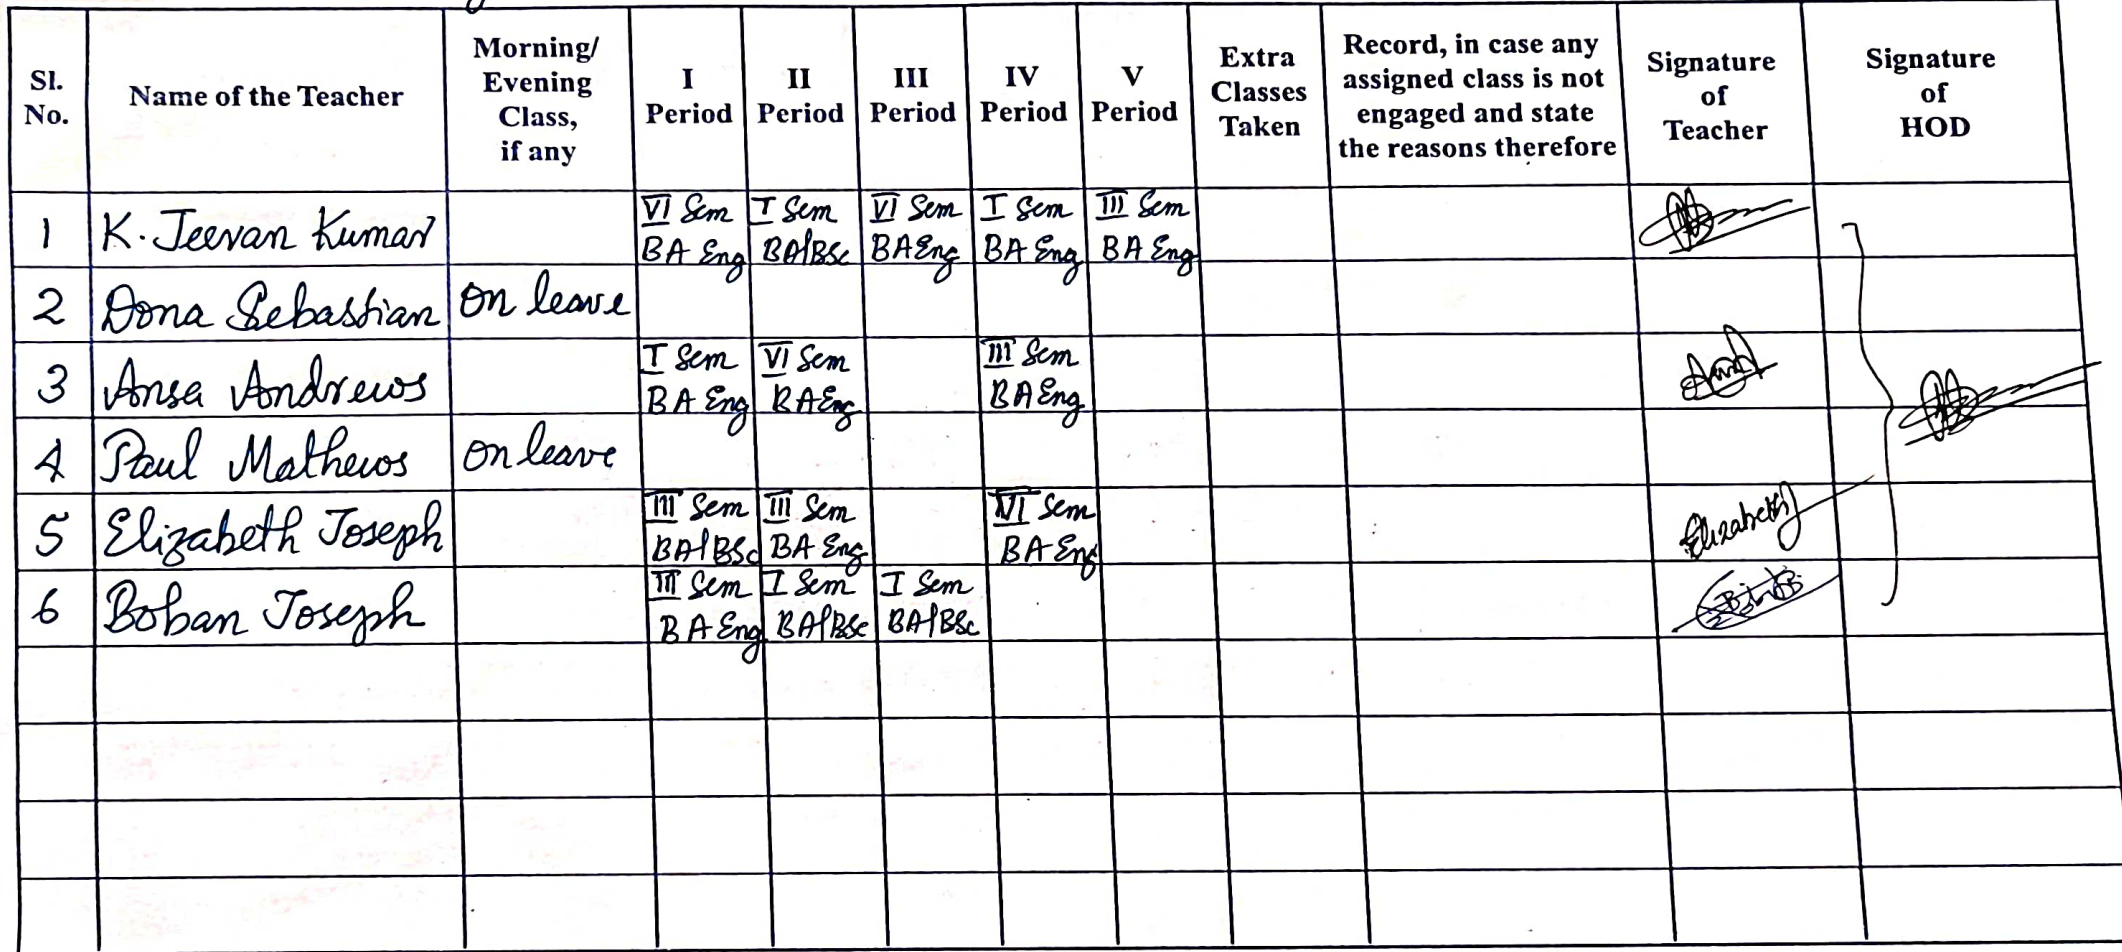 Sl. No.
Name of the Teacher
Morning/ Evening Class, if any
I Period
II Period
III Period
IV Period
V Period
Extra Classes Taken
Record, in case any assigned class is not engaged and state the reasons therefore
Signature of Teacher
Signature of HOD
1 K. Jeevan Kumar
VI Sem BA Eng
I Sem BA/BSc
VI Sem BA Eng
I Sem BA Eng
III Sem BA Eng
2 Dona Sebastian On leave
3 Ansa Andrews
I Sem BA Eng
VI Sem BA Eng
III Sem BA Eng
4 Paul Mathews On leave
5 Elizabeth Joseph
III Sem BA/BSc
III Sem BA Eng
VI Sem BA Eng
Elizabeth
6 Boban Joseph
III Sem BA Eng
I Sem BA/BSc
I Sem BA/BSc